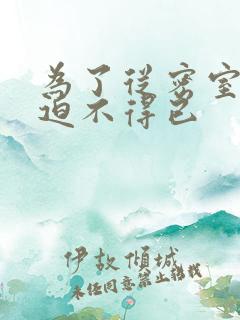 為了從密室
迫不得已
伊故傾城
未經同意禁止轉載